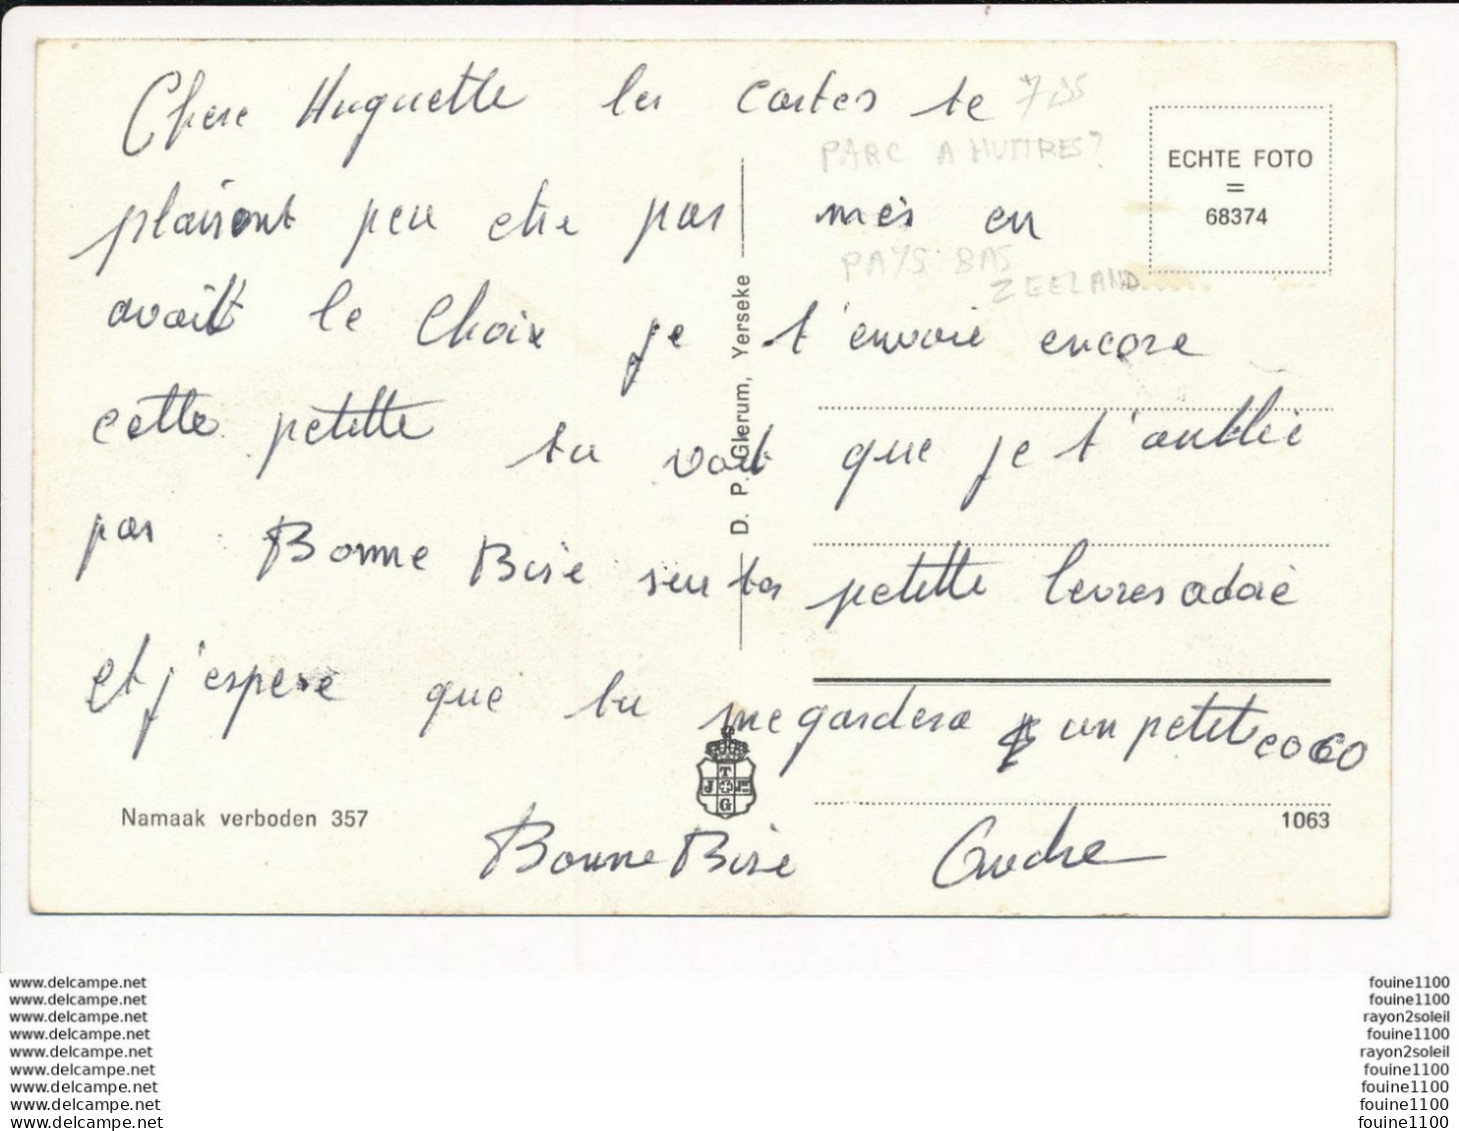 Chere Huguette les cartes te
plairont peu etre pas mes en
avait le choix je t'envoie encore
cette petite tu voit que je t'oublie
pas Bonne Bise sur tes petitte levres adoré
et j'espere que tu me gardera un petit coco
Bonne Bise Andre
PARC A HUITRES?
PAYS BAS
ZEELAND
ECHTE FOTO
=
68374
D. P. Glerum, Yerseke
T
J
G
Namaak verboden 357
1063
www.delcampe.net
www.delcampe.net
www.delcampe.net
www.delcampe.net
www.delcampe.net
www.delcampe.net
www.delcampe.net
www.delcampe.net
www.delcampe.net
fouine1100
fouine1100
rayon2soleil
fouine1100
rayon2soleil
fouine1100
fouine1100
fouine1100
fouine1100